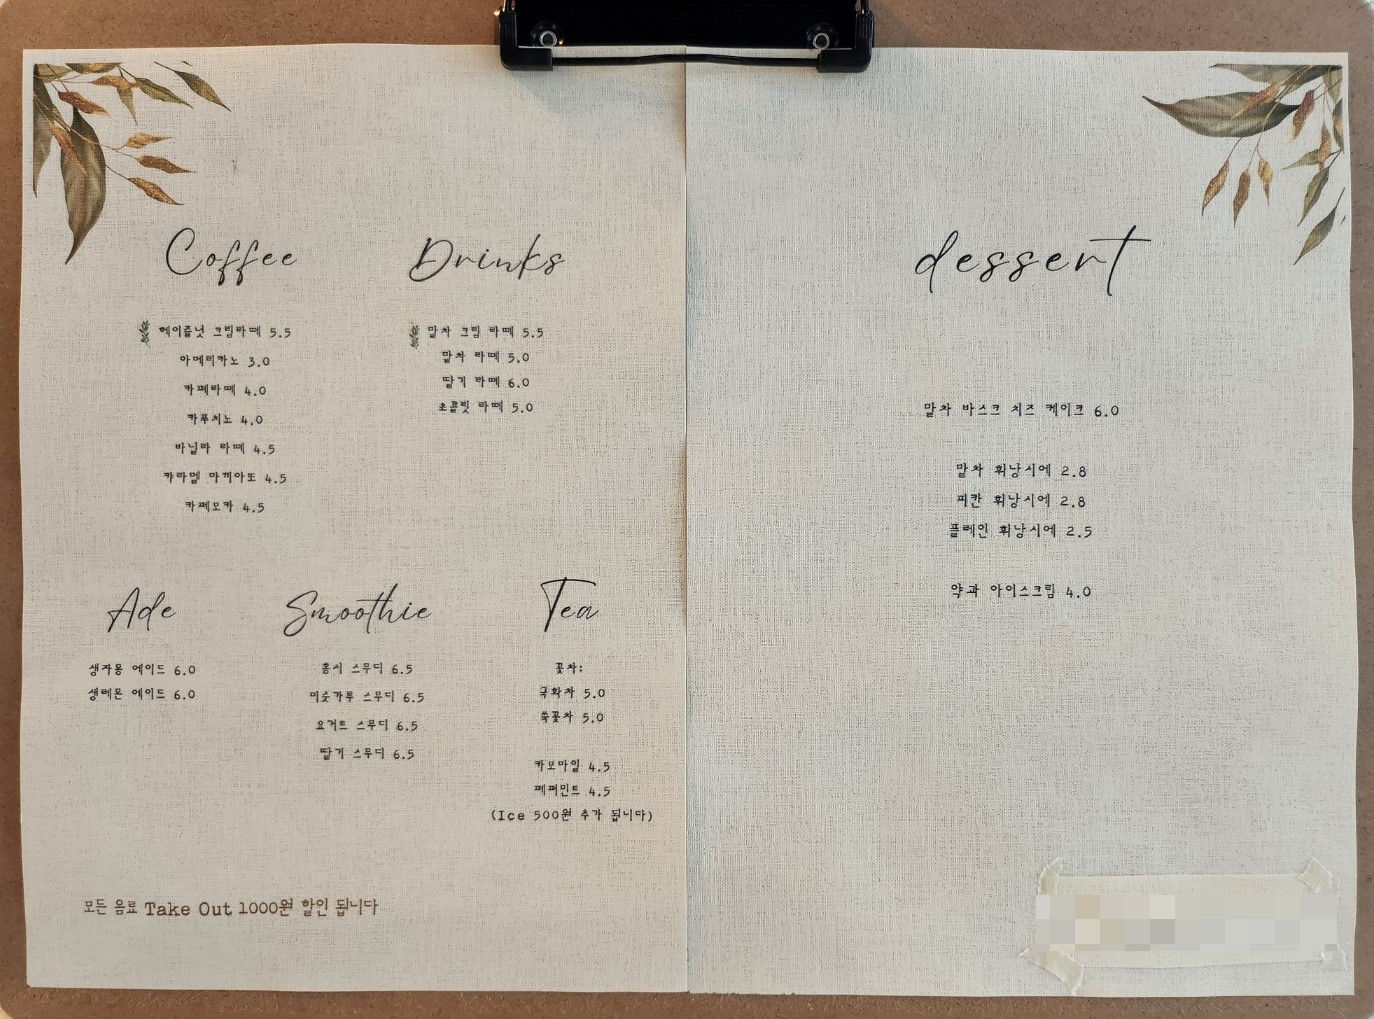 Coffee
헤이즐넛 크림라떼 5.5
아메리카노 3.0
카페라떼 4.0
카푸치노 4.0
바닐라 라떼 4.5
카라멜 마끼아또 4.5
카페모카 4.5
Drinks
말차 크림 라떼 5.5
말차 라떼 5.0
딸기 라떼 6.0
초콜릿 라떼 5.0
Ade
생자몽 에이드 6.0
생레몬 에이드 6.0
Smoothie
홍시 스무디 6.5
미숫가루 스무디 6.5
요거트 스무디 6.5
딸기 스무디 6.5
Tea
꽃차:
국화차 5.0
쑥꽃차 5.0
카모마일 4.5
페퍼민트 4.5
(Ice 500원 추가 됩니다)
모든 음료 Take Out 1000원 할인 됩니다
dessert
말차 바스크 치즈 케이크 6.0
말차 휘낭시에 2.8
피칸 휘낭시에 2.8
플레인 휘낭시에 2.5
약과 아이스크림 4.0